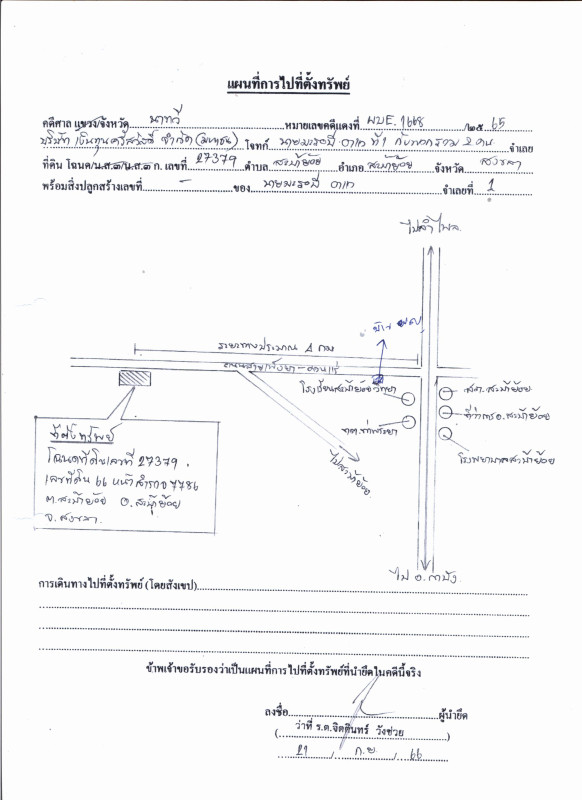 แผนที่การไปที่ตั้งทรัพย์
คดีศาล แขวง/จังหวัด นาทวี หมายเลขคดีแดงที่ ผบE.1668 /๒๕ 65
บริษัท เงินทุนศรีสวัสดิ์ จำกัด (มหาชน) โจทก์ ที่ 1 กับพวกรวม 2 คน จำเลย
ที่ดิน โฉนด/น.ส.๓/น.ส.๓ ก. เลขที่ 27379 ตำบล สะบ้าย้อย อำเภอ สะบ้าย้อย จังหวัด สงขลา
พร้อมสิ่งปลูกสร้างเลขที่ - ของ จำเลยที่ 1
ไปลำไพล
ระยะทางประมาณ 4 กม
โรงเรียนสะบ้าย้อยวิทยา
สภ.สะบ้าย้อย
ที่ว่าการอ.สะบ้าย้อย
โรงพยาบาลสะบ้าย้อย
ไปสะบ้าย้อย
ที่ตั้งทรัพย์
โฉนดที่ดินเลขที่ 27379
เลขที่ดิน 66 หน้าสำรวจ 7786
ต.สะบ้าย้อย อ.สะบ้าย้อย
จ.สงขลา
ไป อ.กาบัง
การเดินทางไปที่ตั้งทรัพย์ (โดยสังเขป)
ข้าพเจ้าขอรับรองว่าเป็นแผนที่การไปที่ตั้งทรัพย์ที่นำยึดในคดีนี้จริง
ลงชื่อ ผู้นำยึด
( ว่าที่ ร.ต.จิตตินทร์ วังช่วย )
21 / ก.ย / 66